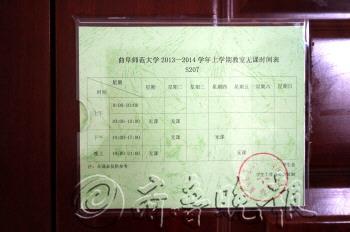 曲阜师范大学2013—2014学年上学期教室无课时间表
S207
星期 星期一 星期二 星期三 星期四 星期五 星期六 星期日
时间
上午 8:00-10:00
10:00-12:00 无课 无课
下午 14:00-17:00 无课 无课
晚上 19:00-21:00 无课 无课
齐鲁晚报